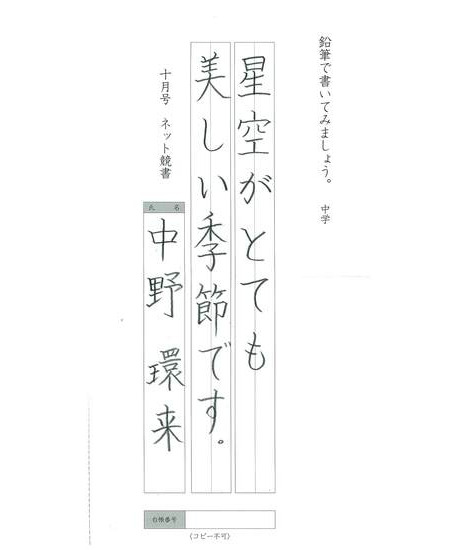 鉛筆で書いてみましょう。 中学
星空がとても
美しい季節です。
十月号 ネット競書
氏名
中野 環来
台帳番号
(コピー不可)